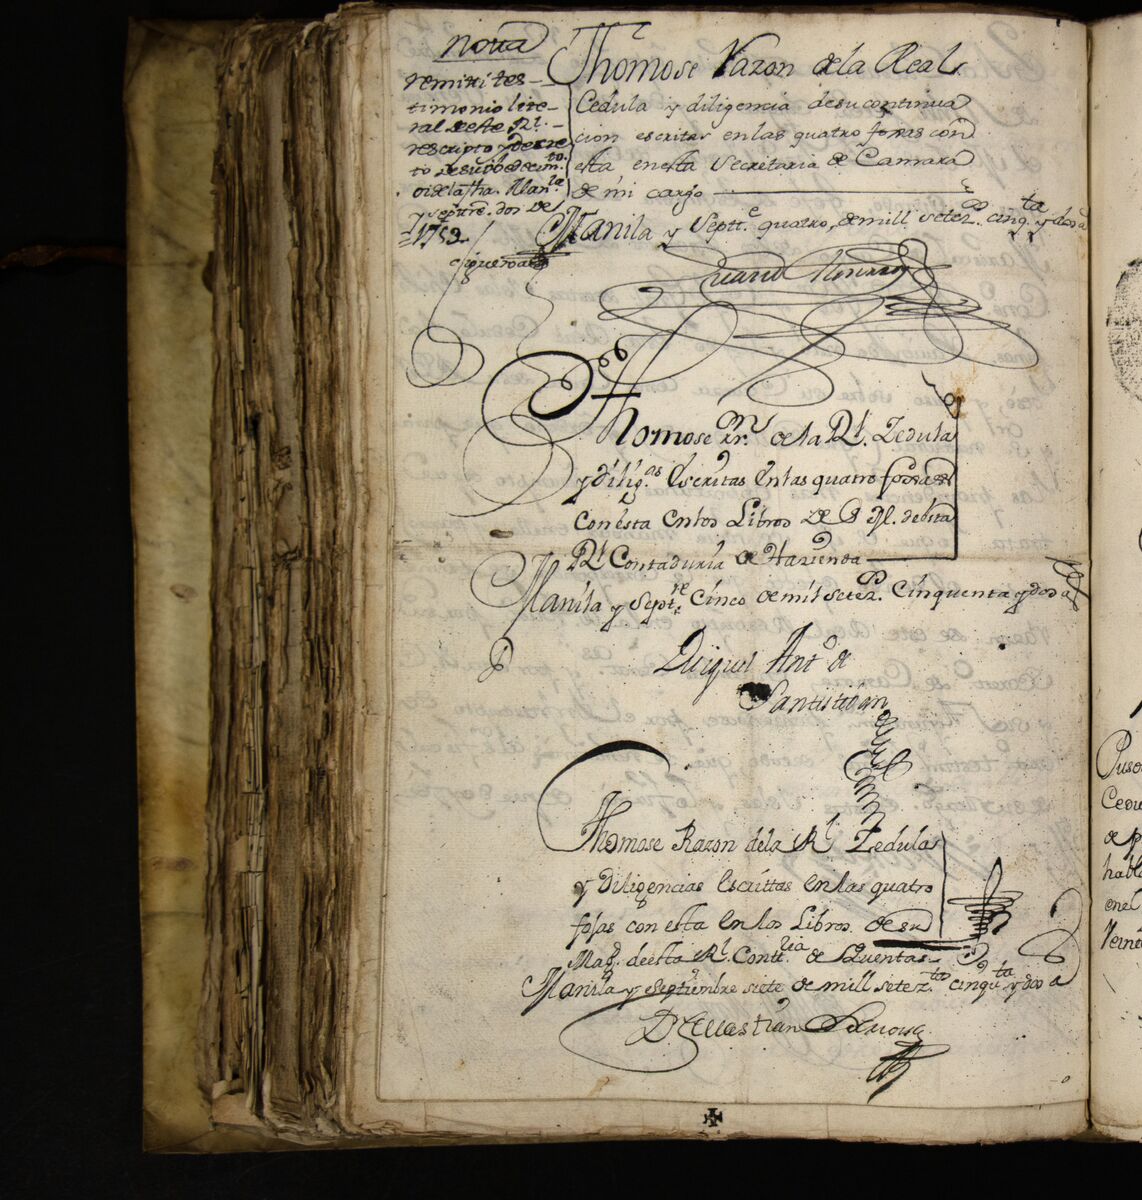 Notta
remiti tes-
timonio lite-
ral de este Rl.
rescripto y decre
to
Manla.
y septre. dos de
1752
Figueroa
Thomose Razon de la Real
Cedula y diligencia de su continua
cion escritas en las quatro foxas con
esta en esta Secretaria de Camara
de mi cargo
Manila y Septte. quatro, de mill setez. cinqta. y dos a
Thomose rn. de la Rl. Zedula
y dilig.as Escritas en las quatro foxas
con esta en los Libros de S. M. de esta
Rl Contaduria de Hazienda
Manila y Septre. Cinco de mil setez. Cinquenta y dos a
Miguel Anto. de
Santistevan
Thomose Razon de la Rl Zedula
y Diligencias Escrittas en las quatro
fojas con esta en los Libros de su
Mag. de esta Rl. Conttria. de Quentas
Manila y Septiembre siete de mill setez.tos cinqta. y dos a
Puso
Cedu
de p
habla
en el